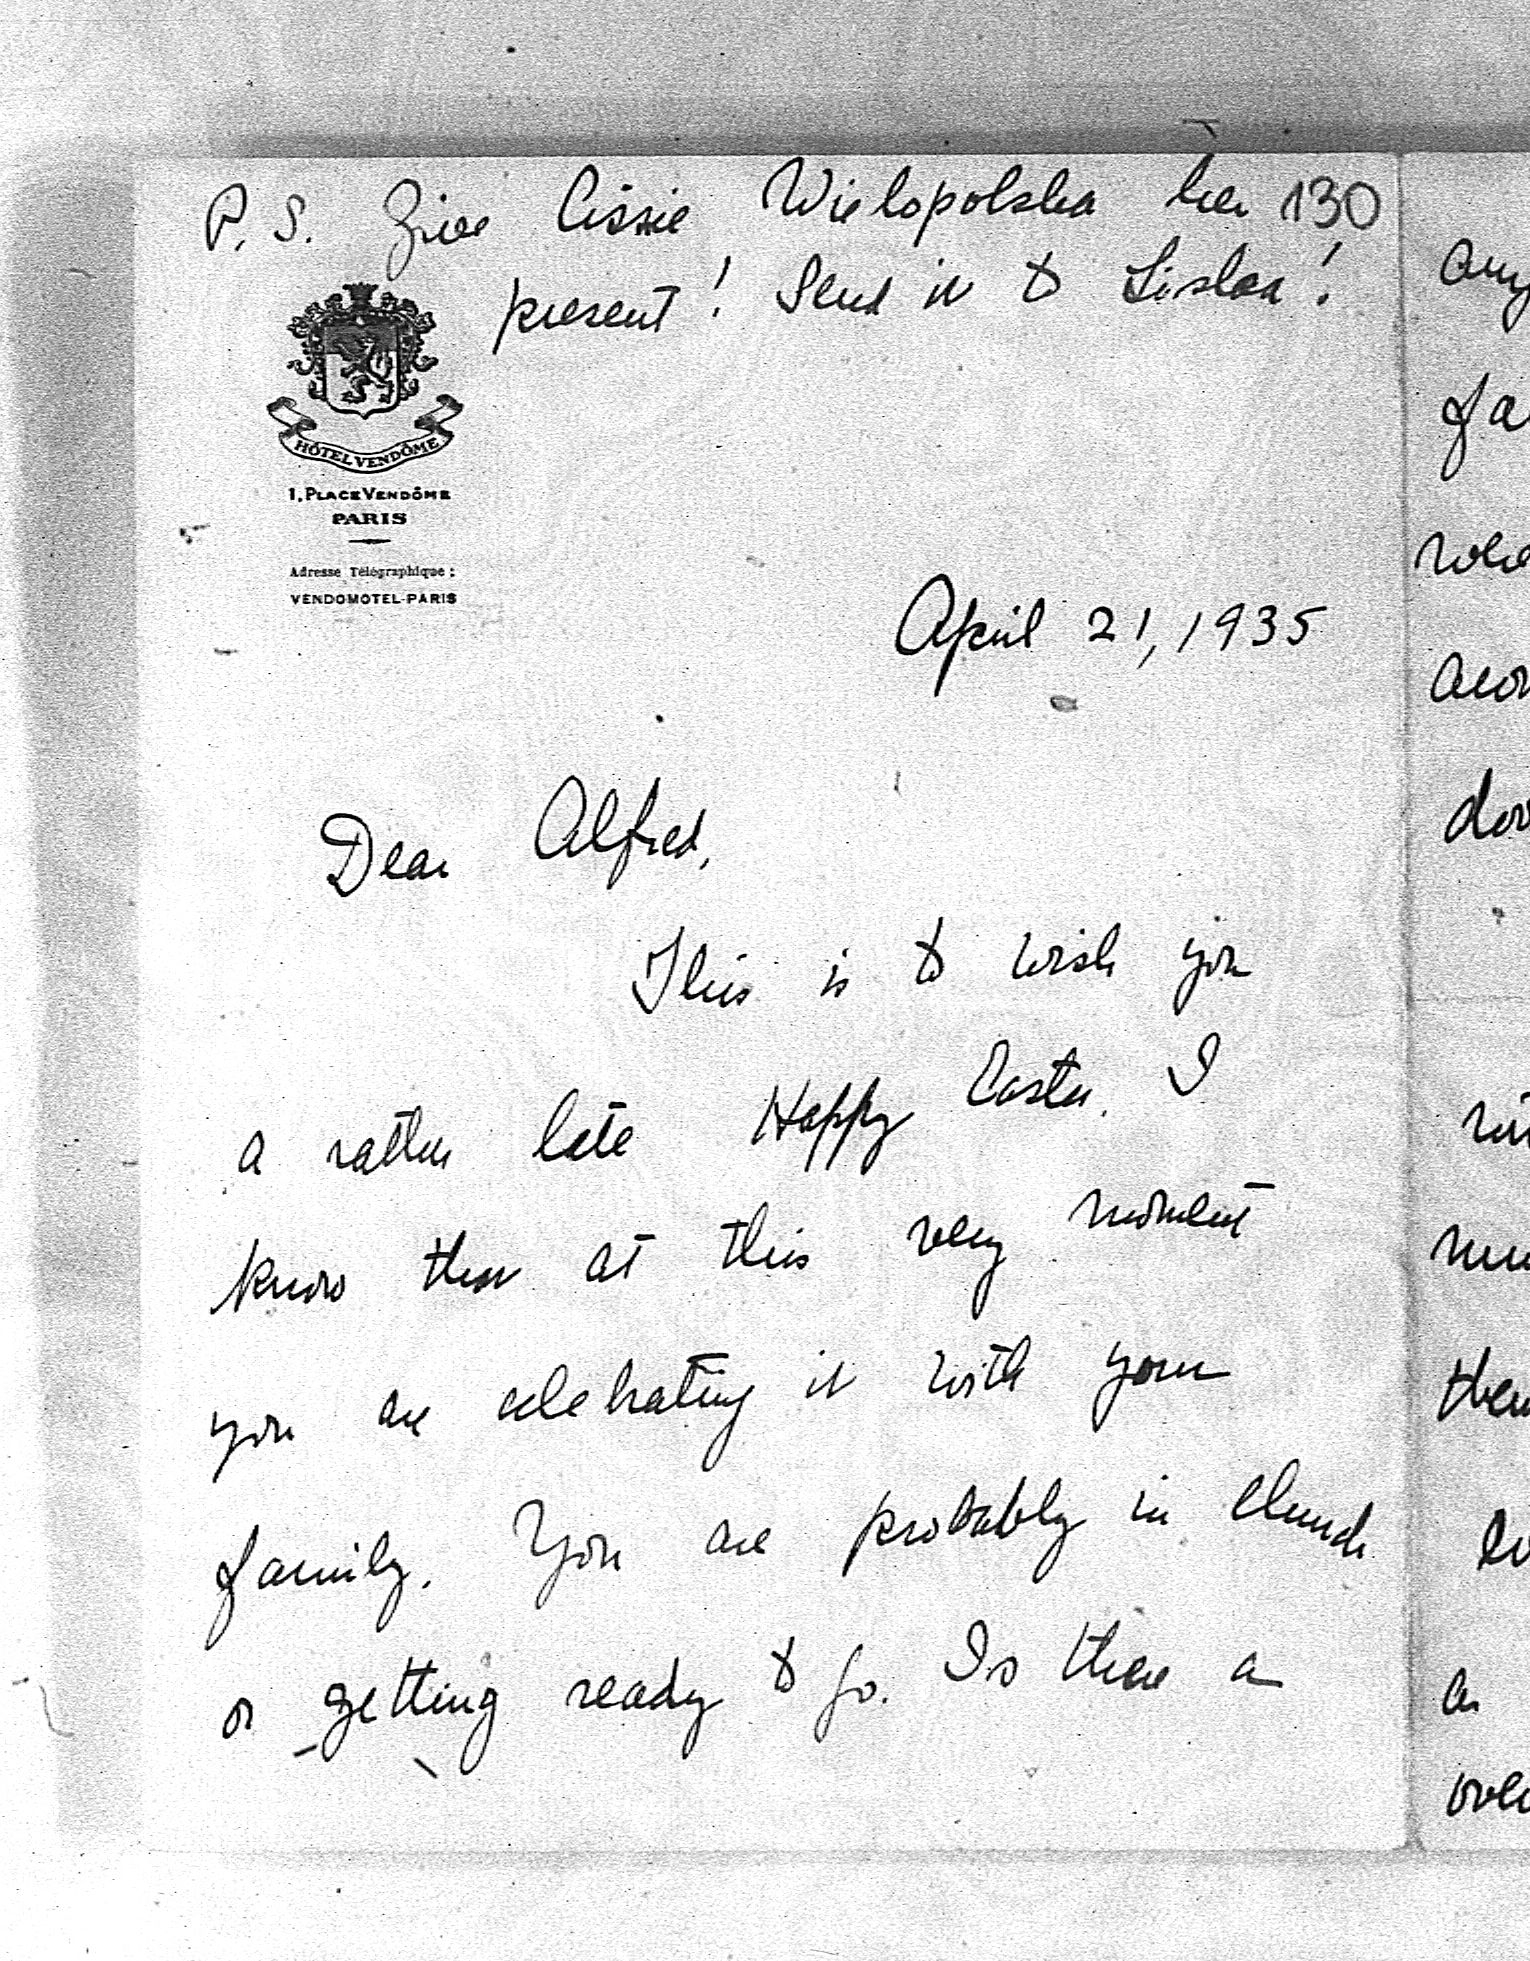 P.S. Give Cissie Wielopolska her 130
present! Send it to Lisbon!
HÔTEL VENDÔME
1, PLACE VENDÔME
PARIS
Adresse Télégraphique:
VENDOMOTEL-PARIS
April 21, 1935
Dear Alfred,
This is to wish you
a rather late Happy Easter. I
know that at this very moment
you are celebrating it with your
family. You are probably in church
or getting ready to go. Is there a